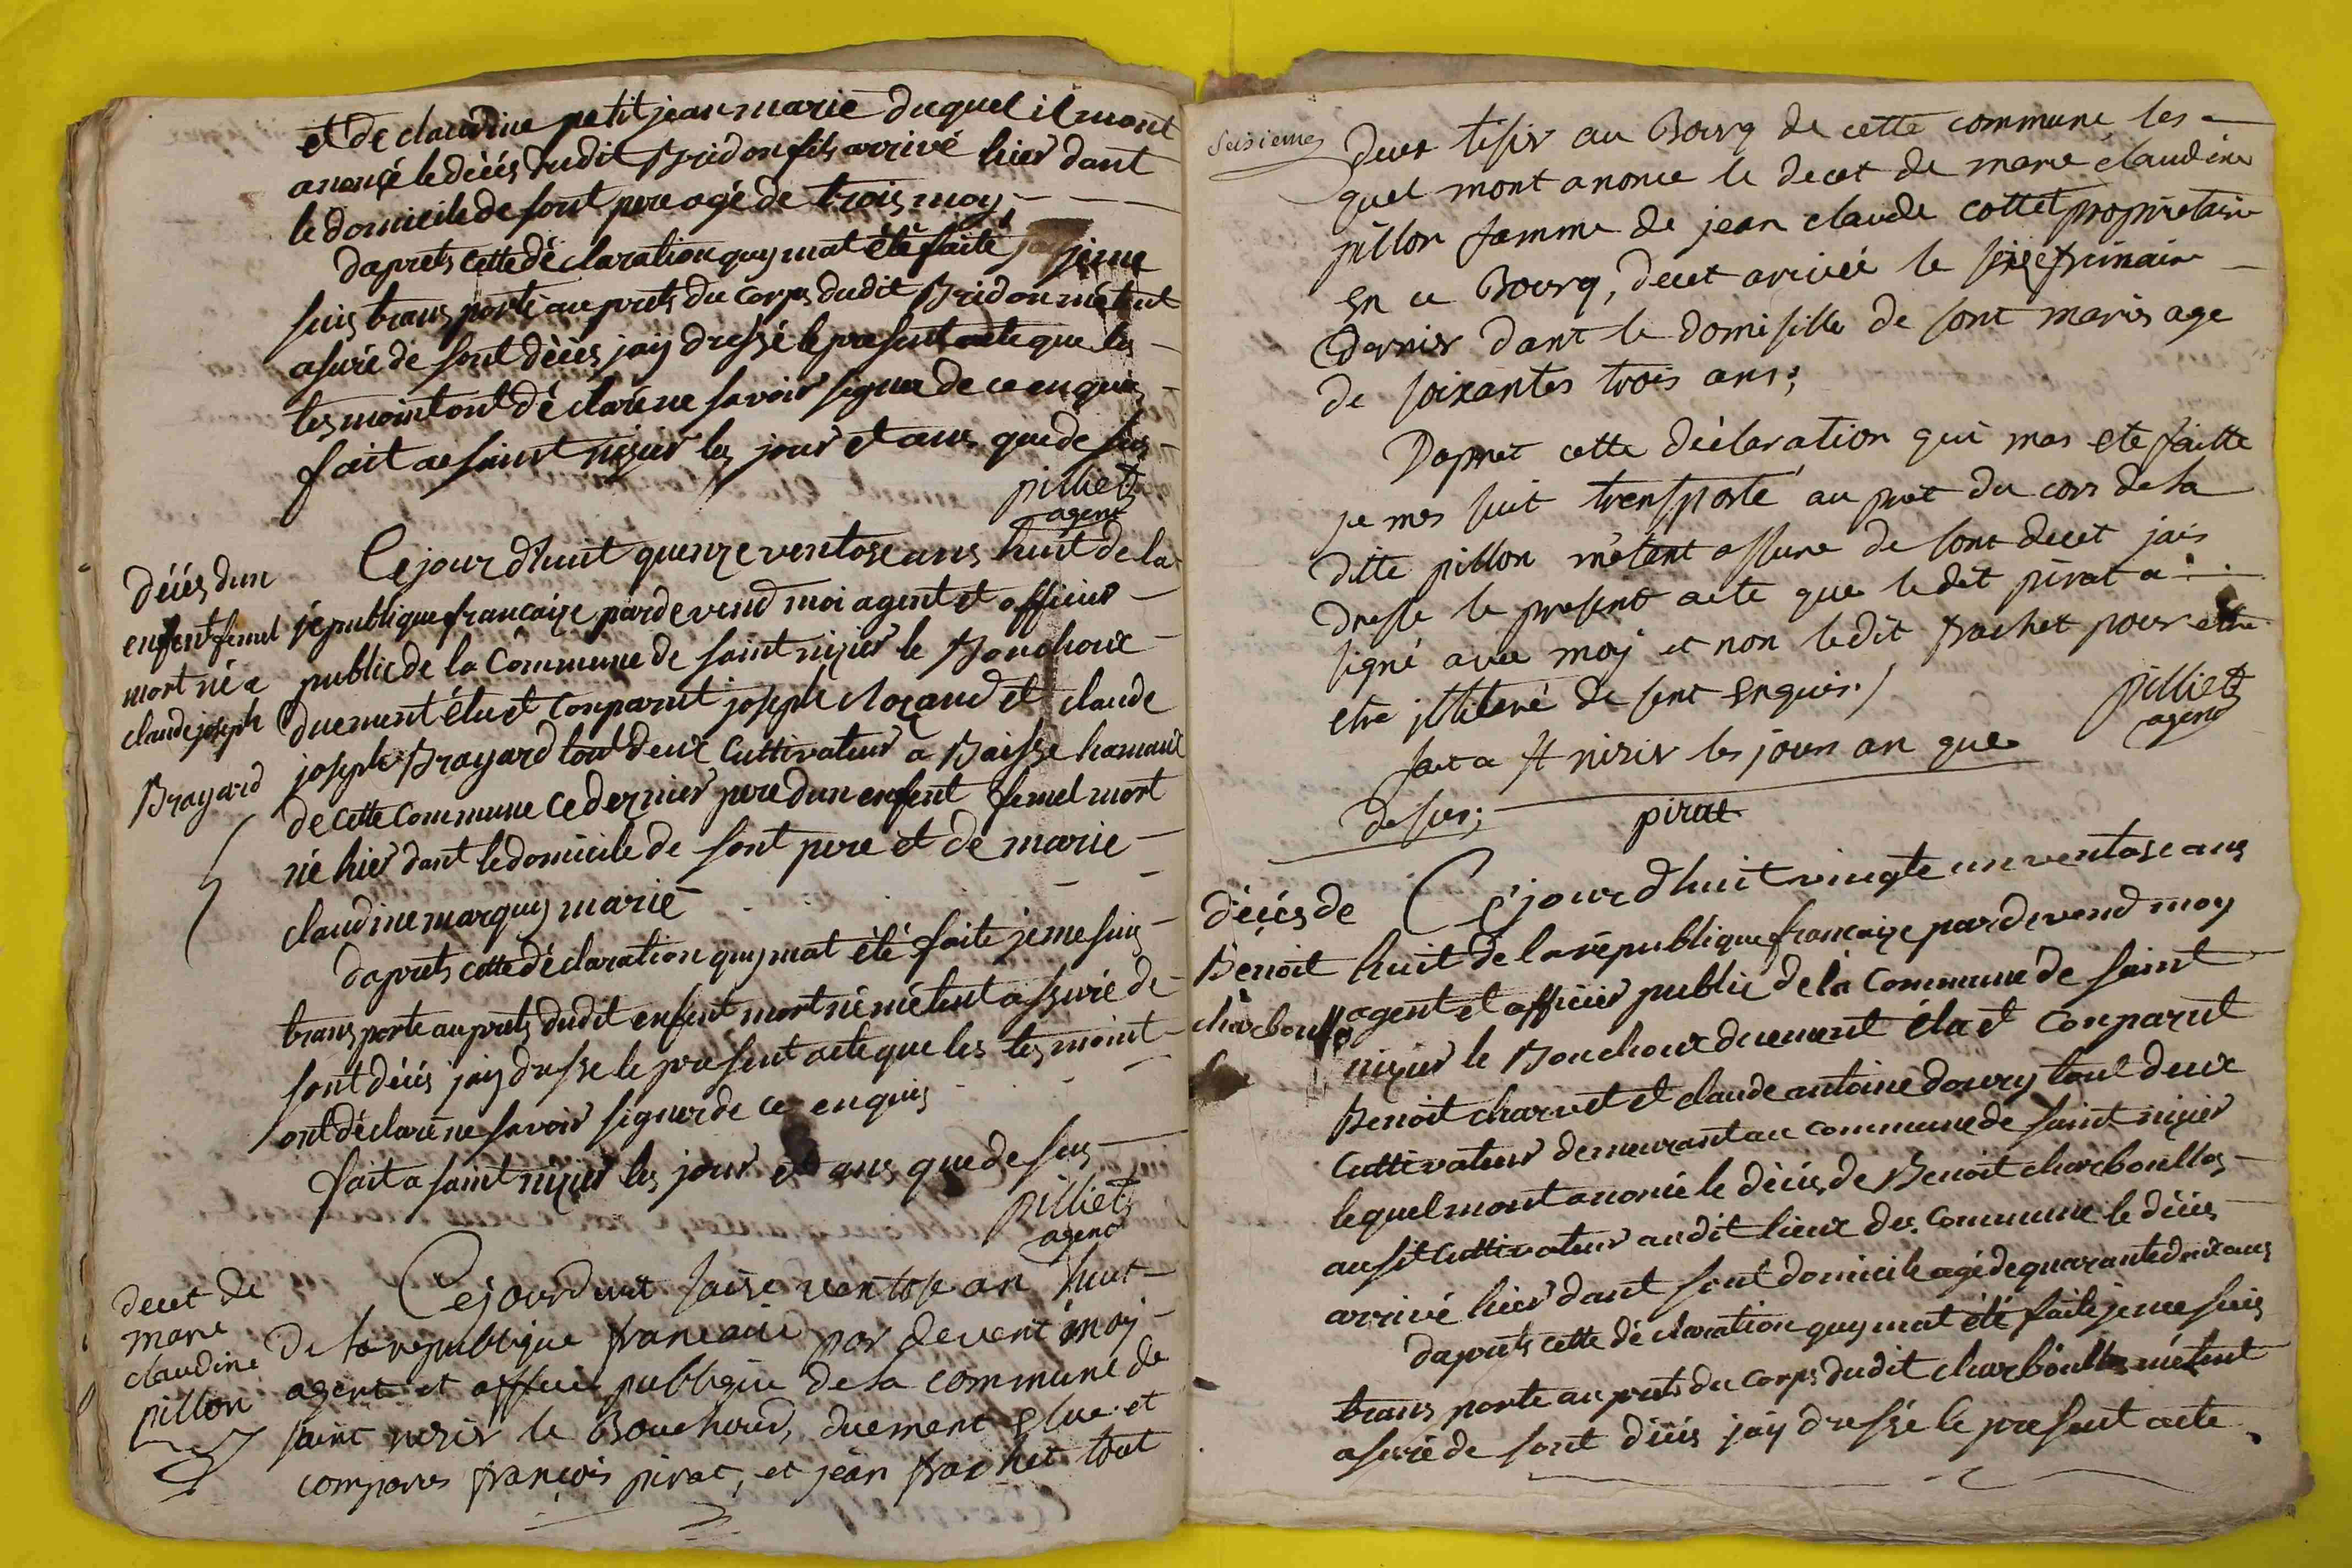 et de claudine petit jean marié duquel il mont
anoncé le décés dudit Bridon fils arrivé hier dant
le domicile de sont pere agé de trois moy
daprets cette déclaration quy mat été faite jeme
suis trans porté au prets du corps dudit Bridon métent
asuré de sont décés jay dressé le present acte que les
tesmoint ont déclaré ne savoir signer de ce enquis
fait a saint nizier les jour et ans que de sus
pilliet
agent
décés dun
enfent femel
mort né a
claude joseph
Brayard
Cejourdhuit quenze ventose ans huit de la
république francaize pardevend moi agent et officier
public de la Commune de saint nizier le Bouchoux
duement élu et Conparut joseph Mozand et claude
joseph Brayard tout deux Cultivateur a Baisse hamaux
de cette Commune ce dernier pere dun enfent femel mort
né hier dant le domicile de sont pere et de marie
claudine marquy marié
daprets cette déclaration quy mat été faite jeme suis
trans porte au prets dudit enfent mort né métent assuré de
sont décés jay dresse le present acte que les tesmoint
ont déclaré ne savoir signer de ce enquis
fait a saint nizier les jour et ans que de sus
pilliet
agent
decet de
marie
claudine
pillon
Cejourduit saise ventose an huit
de la republique francaise par devent moy
agent et officié publique de la commune de
saint nizier le Bouchoud, duement elue et
compares françois pirat, et jean frachet tout
seisieme
deux tisir au Bourg de cette commune les
quel mont anonce le decet de marie claudine
pillon famme de jean claude cottet propriétaire
en ce Bourg, decet arivée le seize frimaire
dernier dant le domisille de sont maris age
de soixantes trois ans;
Dapret cette déclaration qui mas ete faitte
je mes suit transporté au pret du cors de la
ditte pillon métent assure de sont decet jais
dresse le present acte que ledit pirat a
signé avec moy et non ledit frachet pour etre
etre illiteré de sent enquis
pilliet
agent
fait a st nizier les jours an que
de sus;
pirat
décés de
Benoit
charboullo
Cejourdhuit vingte un ventose ans
huit de la république francaize pardevend moy
agent et officier public de la Commune de saint
nizier le Bouchoux duement élu et Conparut
Benoit charvet et claude antoine doury tout deux
Cultivateur demeurant au commune de saint nizier
lequel mont anoncé le décés de Benoit charboullos
ausit Cultivateur audit lieux de Commune le décés
arrivé hier dant sont domicile agé de quarante doix ans
daprets cette déclaration quy mat été faite jeme suis
trans porte au prets du corps dudit charboullos métent
asuré de sont décés jay dressé le present acte